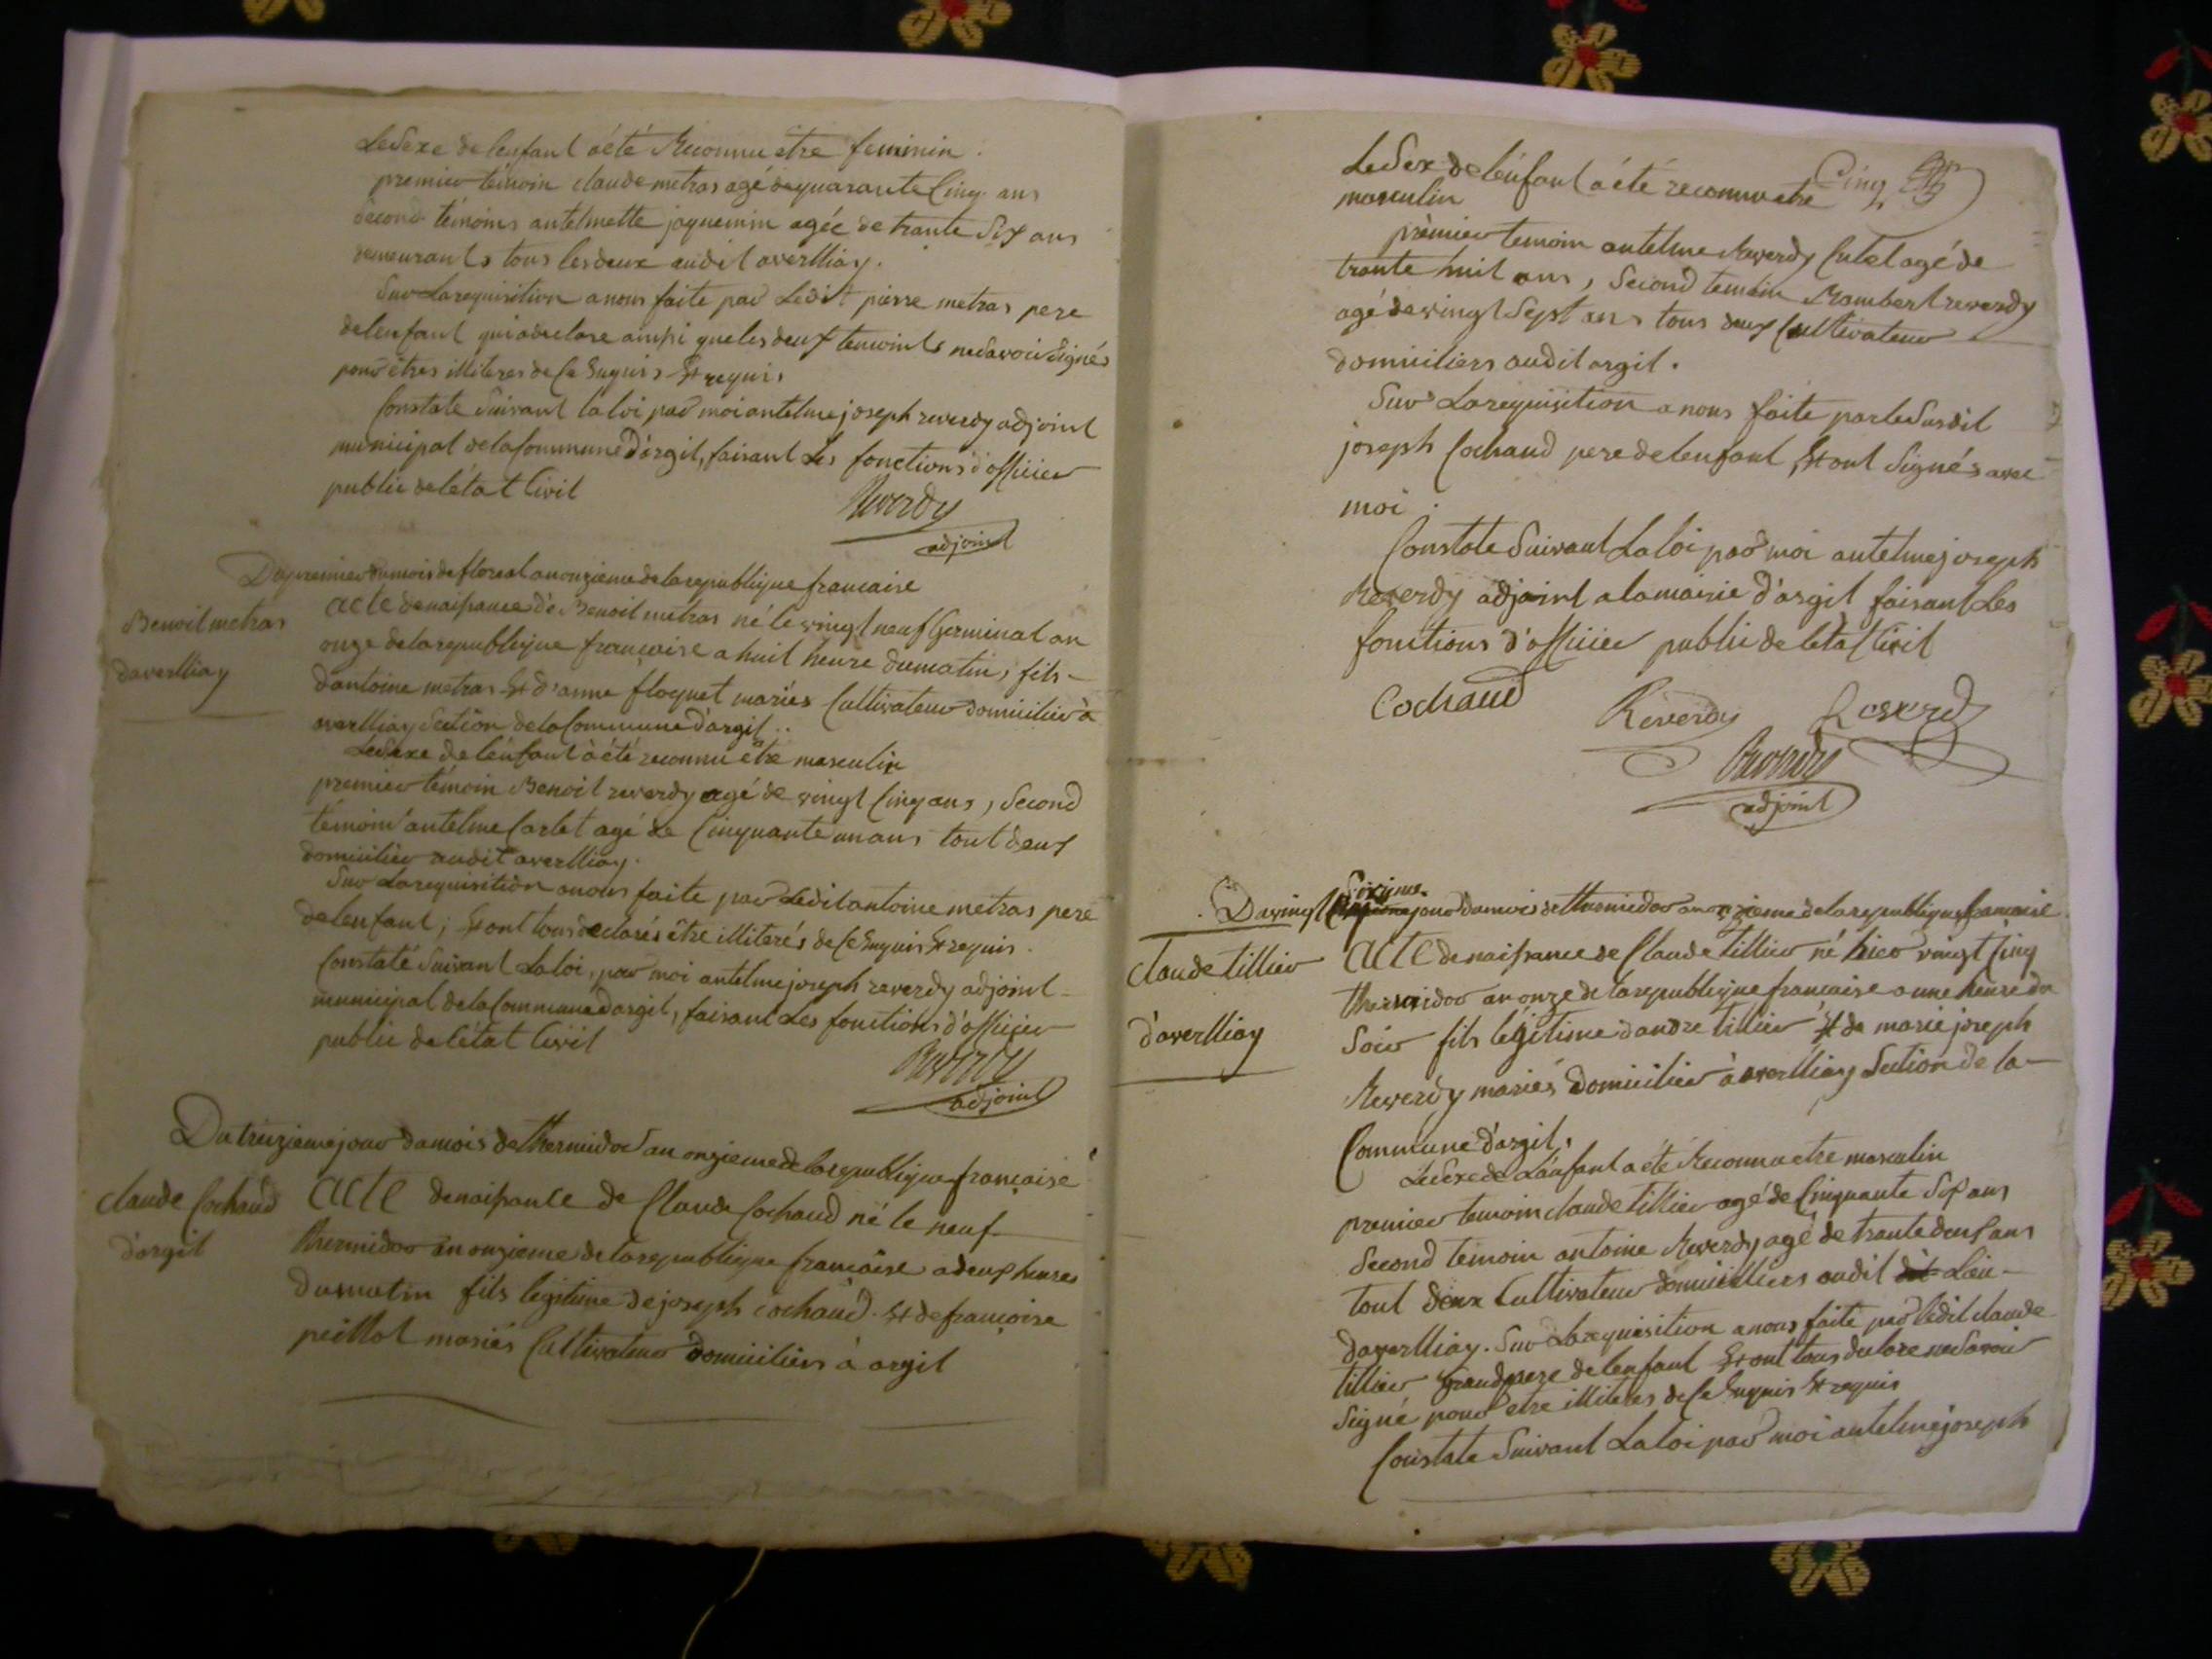 Le Sexe de lenfant a été Reconnu etre feminin.
premier témoin claude metras agé de quarante Cinq ans
Second témoins antelmette joquemin agée de trante Six ans
demeurants tous les deux audit averlliay.
Sur La requisition a nous faite par Ledit pierre metras pere
de lenfant qui a declare ainsi que les deux temoints ne Savoir Signés
pour êtres illiteres de Ce Enquis Et requis
Constate Suivant la loi par moi antelme joseph reverdy adjoint
municipal de la Commune D'argit, faisant Les fonctions d'officier
public de létat Civil
Reverdy
adjoint
Du premier du mois de floreal an onzieme de la republique francaise
Benoit metras
daverlliay
acte de naissance de Benoit metras né le vingt neuf Germinal an
onze de la republique francoise a huit heure du matin, fils
dantoine metras Et d'anne floquet mariés Cultivateur domicilier à
averlliay Section de la Commune d'argit.
Le Sexe de lénfant à été reconnu etre masculin
premier témoin Benoit reverdy agé de vingt Cinq ans, Second
témoin antelme Carlet agé de Cinquante un ans tout deux
domicilier audit averlliay.
Sur La requisition a nous faite par Ledit antoine metras pere
de lenfant, Et ont tous declarés être illiterés de Ce Enquis Et requis.
Constaté Suivant La loi, par moi antelme joseph reverdy adjoint
municipal de la Commune d'argit, faisant Les fonctions d'officier
public de létat Civil
Reverdy
adjoint
Du treizieme jour du mois de thermidor an onzieme de la republique francaise
claude Cochaud
d'argit
acte de naissance de Claude Cochaud né le neuf
thermidor an onzieme de la republique francaise a deux heures
du matin fils legitime de joseph Cochaud Et de francoise
peillot mariés Cultivateur domiciliers à argit
Cinq
Le Sex de lénfant a été reconnu etre
masculin
prèmier temoin antelme Reverdy Cutel agé de
trante huit ans, Second temoin Rambert reverdy
agé de vingt Sept ans tous deux Cultivateur
domiciliers audit argit.
Sur La requisition a nous faite par le Susdit
joseph Cochaud pere de lenfant, Et ont Signés avec
moi.
Constate Suivant La loi par moi antelme joseph
Reverdy adjoint a la mairie d'argit faisant Les
fonctions d'officier public de létat Civil
Cochaud
Reverdy Reverdy
Reverdy
adjoint
Sixieme
Du vingt jour du mois de thermidor an onzieme de la republique francaise
claude tillier
d'averlliay
acte de naissance de Claude tillier né hier vingt Cinq
thermidor an onze de la republique francaise a une heure du
Soir fils legitime dandre tillier Et de marie joseph
Reverdy mariés domicilier à averlliay Section de la
Commune d'argit.
Le Sexe de Lénfant a été Reconnu etre masculin
premier temoin claude tillier agé de Cinquante Six ans
Second témoin antoine Reverdy agé de trante deux ans
tout deux Cultivateur domicilliers audit dit Lieu
daverlliay. Sur La requisition a nous faite par ledit claude
tillier grand pere de lenfant Et ont tous declare ne Savoir
Signé pour etre illiteres de Ce Enquis Et requis
Constate Suivant La loi par moi antelme joseph